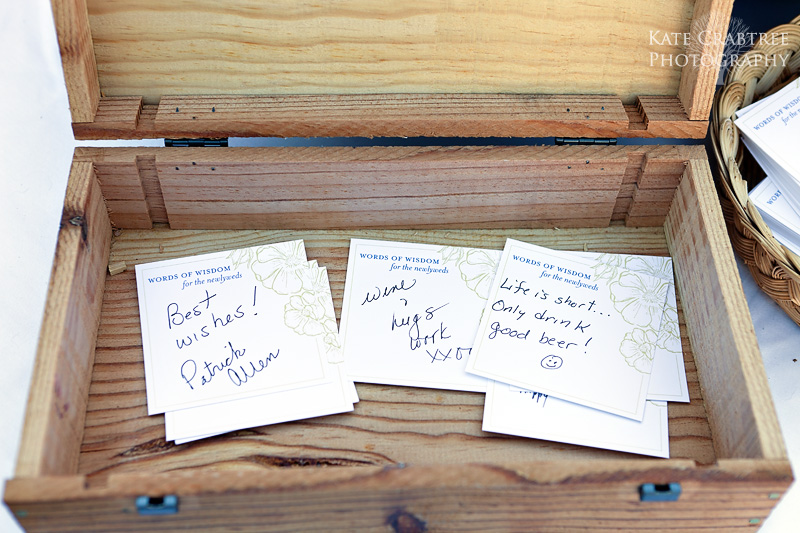 KATE CRABTREE
PHOTOGRAPHY
WORDS OF WISDOM
for the newlyweds
Best
wishes!
Patrick
Allen
WORDS OF WISDOM
for the newlyweds
wine
&
hugs
work
XXO
WORDS OF WISDOM
for the newlyweds
Life is short...
Only drink
good beer!
WORDS
WORD